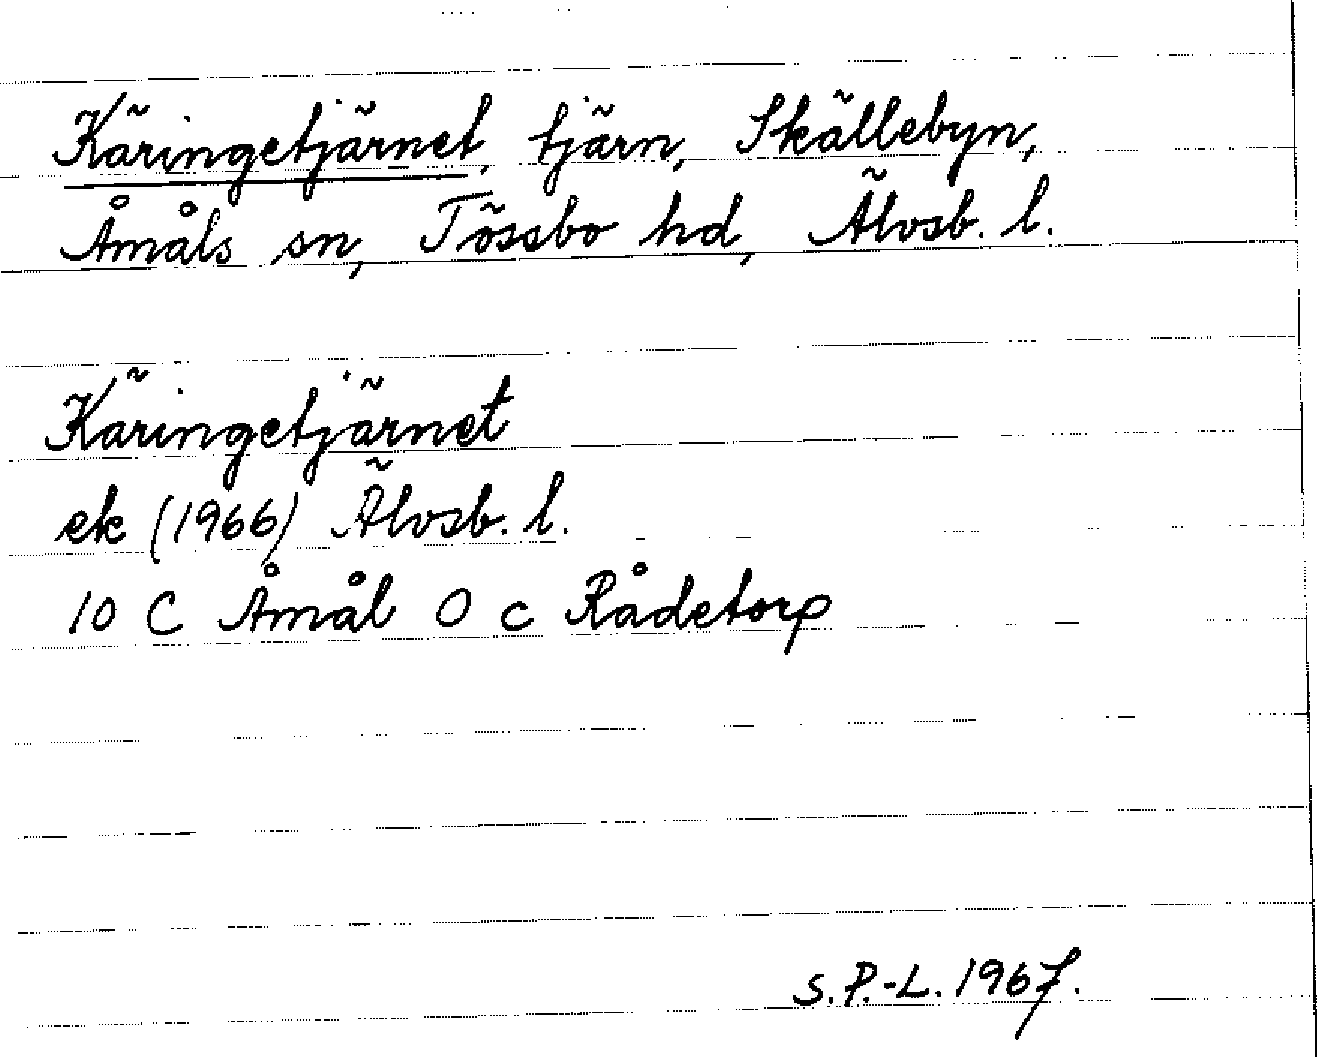 Käringetjärnet, tjärn, Skällebyn,
Åmåls sn, Tössbo hd, Älvsb. l.
Käringetjärnet
ek (1966) Älvsb. l.
10 C Åmål 0 c Rådetorp
S.P.-L. 1967.